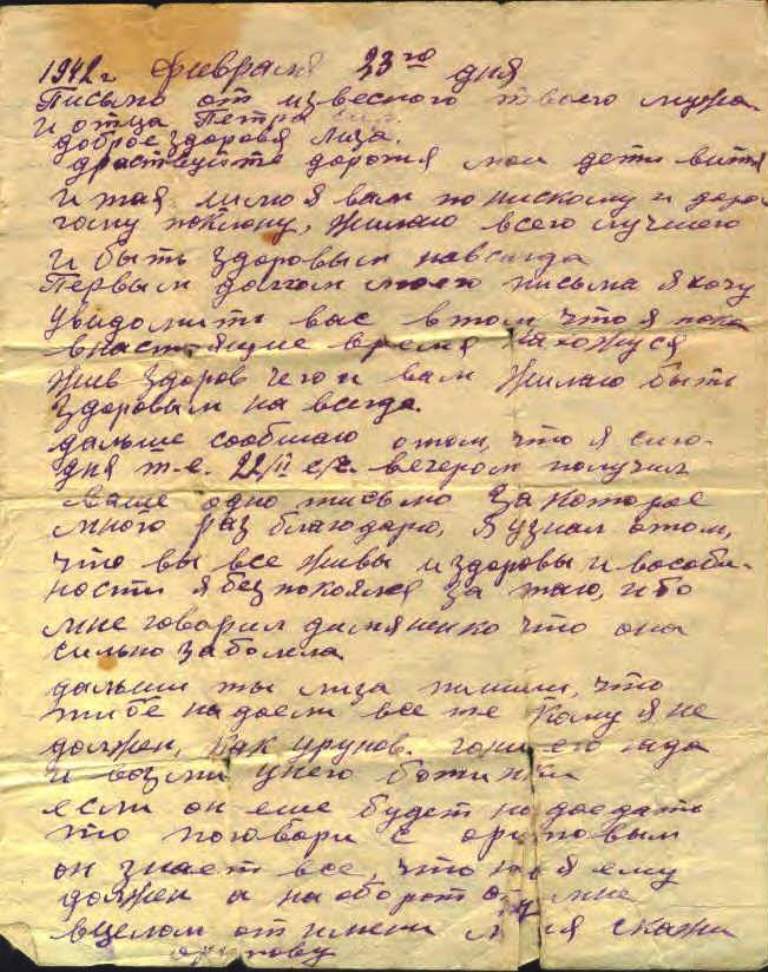 1942 г февраля 23го дня
Письмо от извесного твоего мужа
и отца Петра
доброе здоровя Лиза.
драствуйте дорогия мои дети витя
и тая шлю я вам по нискому и доро-
гому поклону, жилаю всего лучшего
и быть здоровым навсигда
Первым долгом моего письма я хочу
уведомить вас втом что я пока
внастоящие время нахожуся
жив здоров чего и вам жилаю быть
здоровым на всегда.
дальше сообшаю отом, что я сиго-
дня т.е. 22/II с/г. вечером получил
Ваше одно письмо за которое
много раз благодарю, я узнал отом,
что вы все живы издоровы и вособи-
ности я безпокоялся за таю, ибо
мне говорил что она
сильно заболела
дальши ты лиза пишиш, что
тибе надоели все те кому я не
должен, как урунов. гони его гада
и возми унего ботинки
если он еше будет надоедать
то поговари с
он знает все, что не я ему
должен а наоборот он мне
вцелом от имени миня скажи